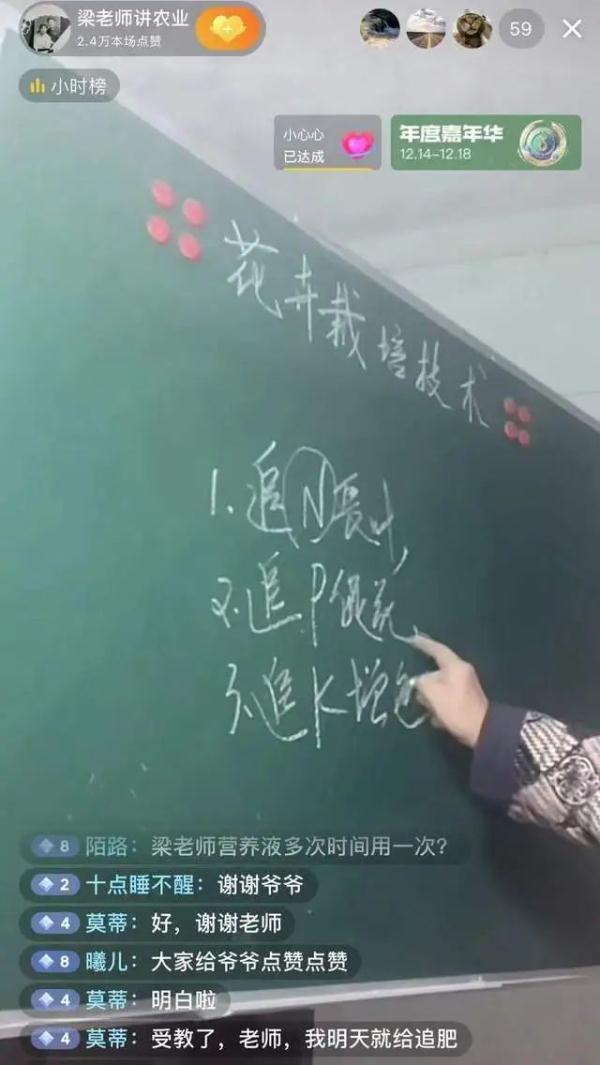 梁老师讲农业
2.4万本场点赞
59
小时榜
小心心
已达成
年度嘉年华
12.14-12.18
花卉栽培技术
1.追N长叶,
2.追P促花
3.追K增色
8 陌路：梁老师营养液多次时间用一次？
2 十点睡不醒：谢谢爷爷
4 莫蒂：好，谢谢老师
8 曦儿：大家给爷爷点赞点赞
4 莫蒂：明白啦
4 莫蒂：受教了，老师，我明天就给追肥